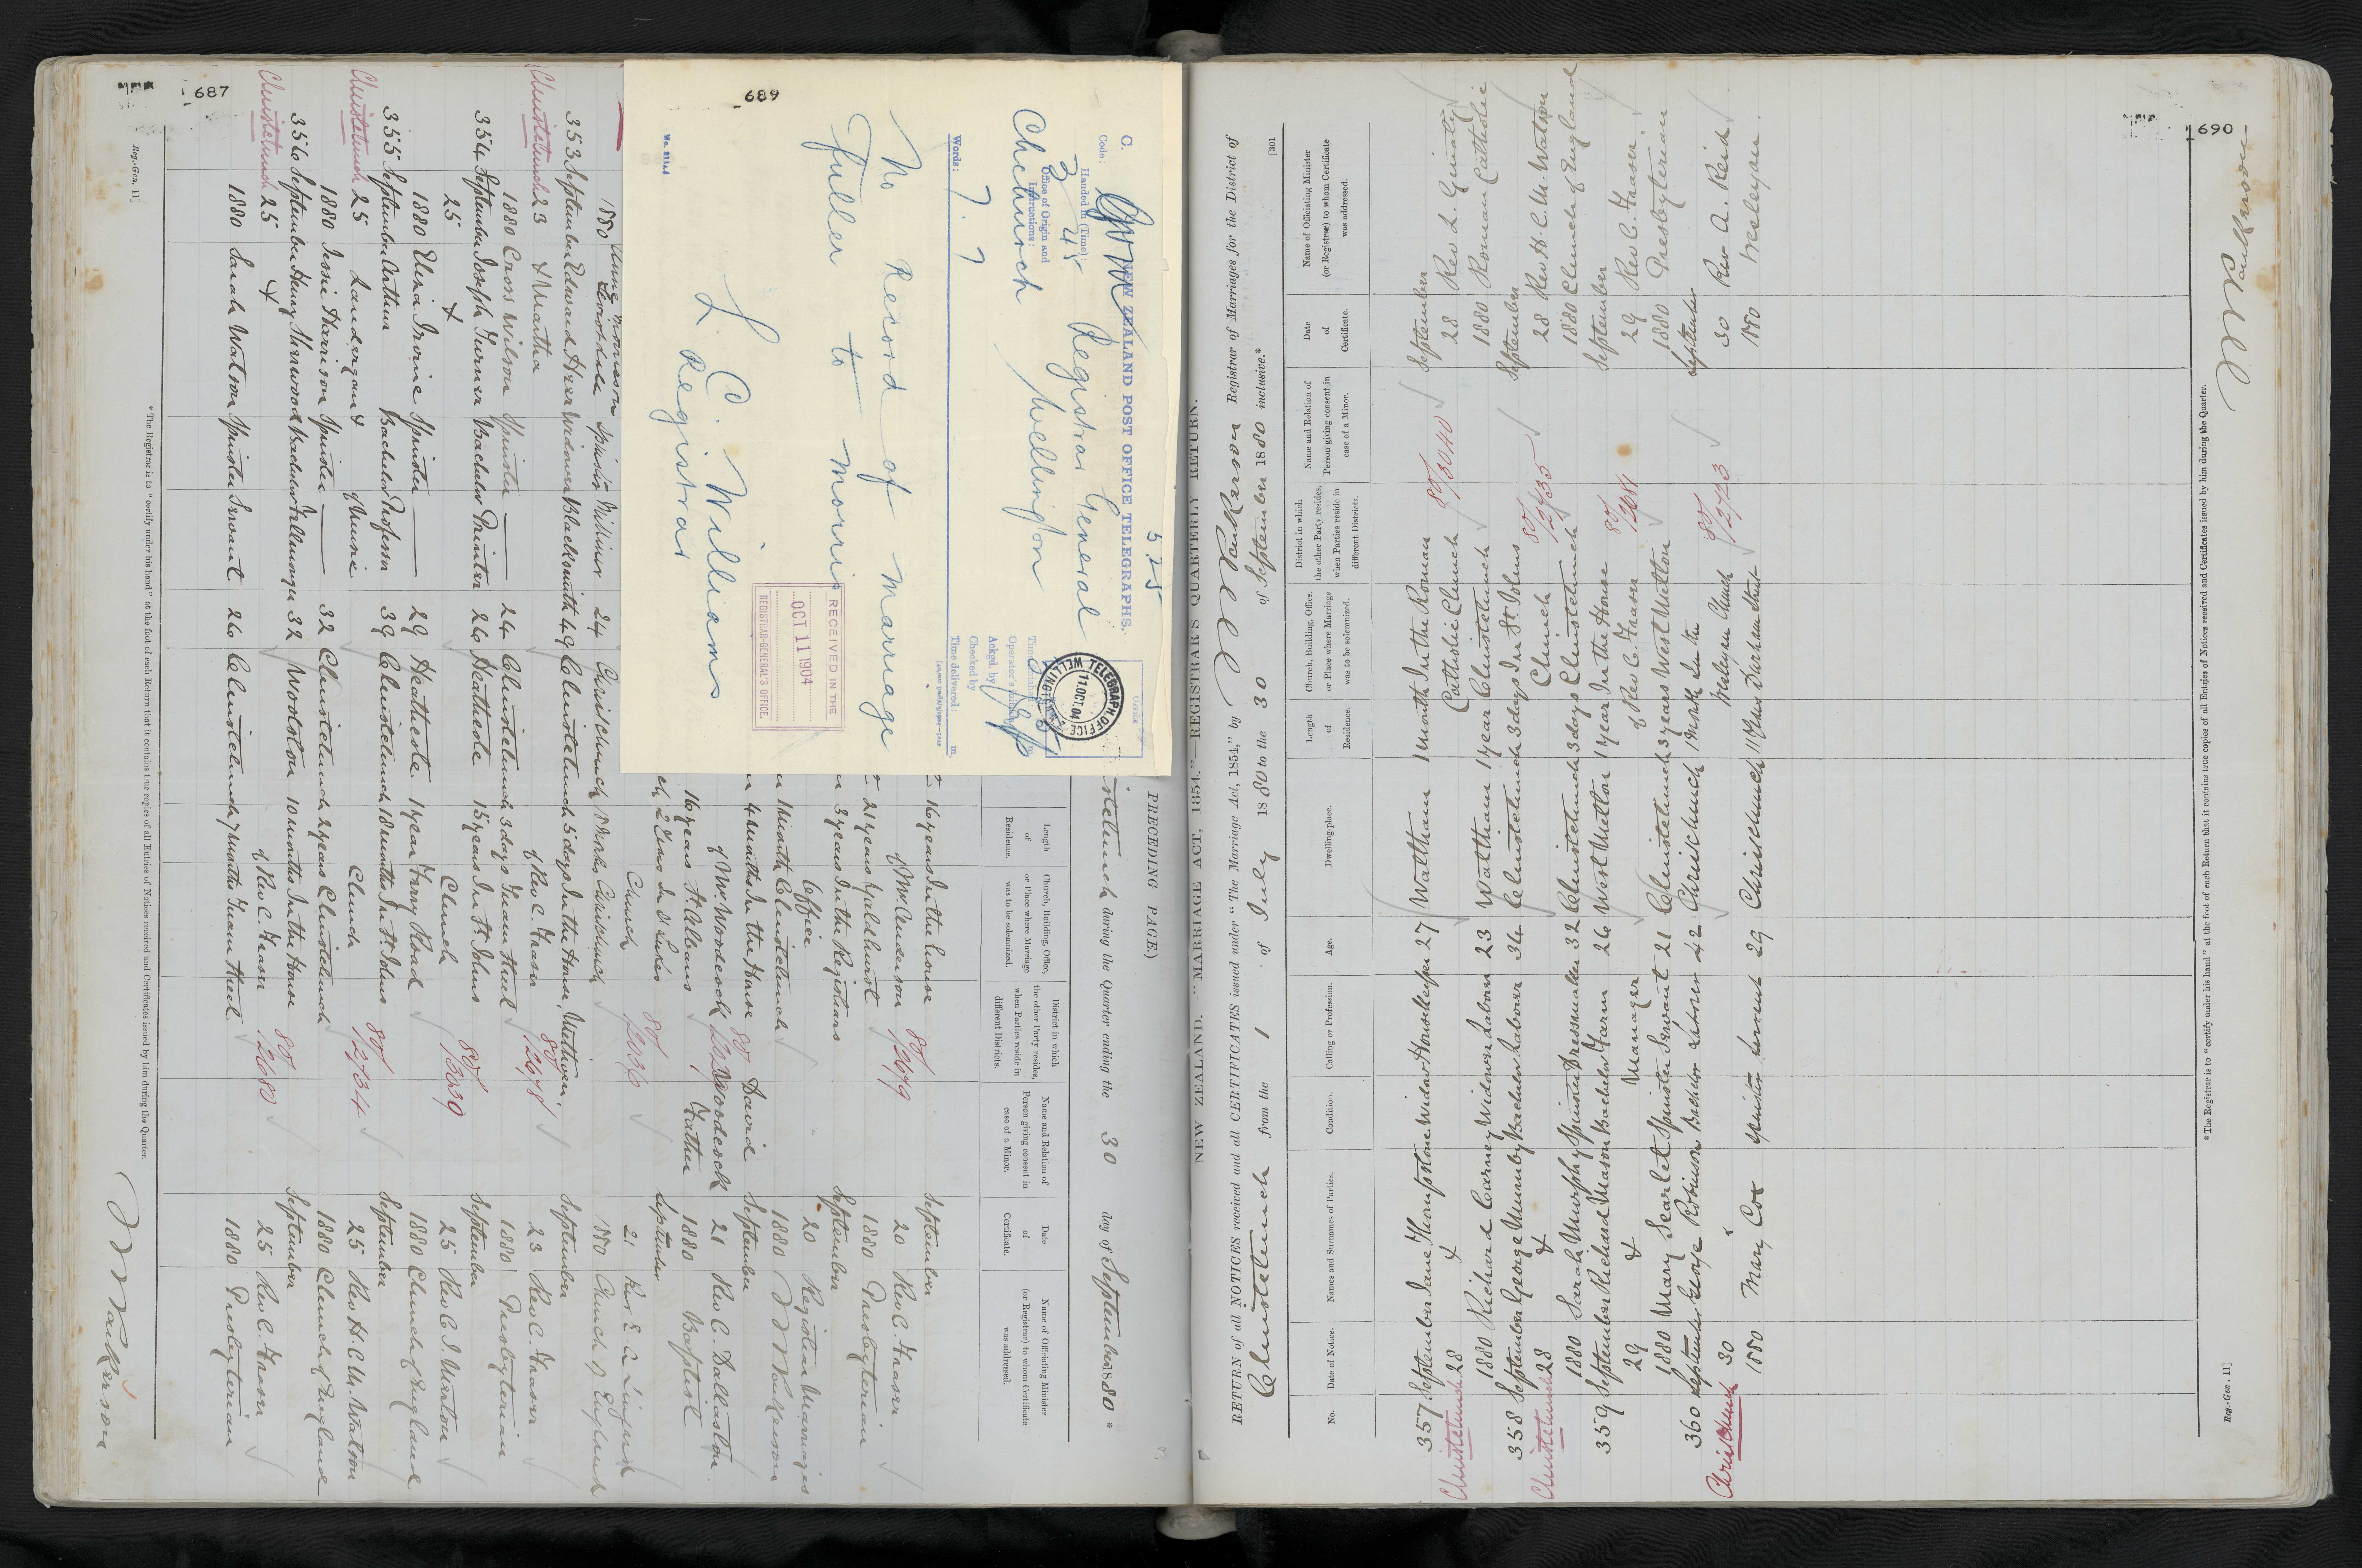 687
Reg.-Gen. 11]
689
C. NEW ZEALAND POST OFFICE TELEGRAPHS.
5.25
Code:
Handed in (Time):
3 45
Registrar General
Office of Origin and
Instructions:
Chchurch
Wellington
Words:
7. 7
Ackgd. by
Checked by
Time delivered: m.
TELEGRAPH OFFICE
11.OCT.04
No Record of Marriage
Fuller to Morris
L. C. Williams
Registrar
RECEIVED IN THE
OCT 11 1904
REGISTRAR-GENERAL'S OFFICE.
PRECEDING PAGE)
during the Quarter ending the 30 day of September 1880 *
Length of Residence.
Church, Building, Office, or Place where Marriage was to be solemnized.
District in which the other Party resides, when Parties reside in different Districts.
Name and Relation of Person giving consent in case of a Minor.
Date of Certificate.
Name of Officiating Minister (or Registrar) to whom Certificate was addressed.
September
16 years In the house 20 Rev C. Fraser
of Mr Cenderson 80/2679 1880 Presbyterian
21 years Yaldhurst
3 years In the Registrars September
Office 20 Registrar Marriages
1 Month Christchurch 1880
4 Months In the House David September
of Mr Woodcock Woodcock 21 Rev C. Dallaston
16 years St Albans Father 1880 Baptist
2 years In St Lukes September
Church 80/ 21 Rev E. A. Lingard
1880 24 Christchurch Christchurch 1880 Church of England
353 September Edward Herr Widower Blacksmith 49 Christchurch 5 days In the House September
Christchurch 23 & Martha of Rev C. Fraser 80/2678 23 Rev C. Fraser
1880 Cross Wilson Spinster 24 Christchurch 3 days Tuam Street 1880 Presbyterian
354 September Joseph Turner Bachelor Painter 26 Heathcote 15 years In St Johns September
25 & Church 80/3039 25 Rev
1880 Eliza Irvine Spinster 29 Heathcote 1 year Ferry Road 1880 Church of England
355 September Arthur Bachelor Professor 39 Christchurch 18 months In St Johns September
Christchurch 25 Landergan & of Music Church 80/2734 25 Rev H. C. M. Watson
1880 Jessie Harrison Spinster 32 Christchurch 2 years Christchurch 1880 Church of England
356 September Henry Sherwood Bachelor Fellmonger 32 Woolston 10 months In the House September
Christchurch 25 & of Rev C. Fraser 80/2680 25 Rev C. Fraser
1880 Sarah Watson Spinster Servant 26 Christchurch 7 Months Tuam Street 1880 Presbyterian
* The Registrar is to "certify under his hand" at the foot of each Return that it contains true copies of all Entries of Notices received and Certificates issued by him during the Quarter.
690
[301
NEW ZEALAND. "MARRIAGE ACT, 1854."—REGISTRAR'S QUARTERLY RETURN.
RETURN of all NOTICES received and all CERTIFICATES issued under "The Marriage Act, 1854," by Registrar of Marriages for the District of
Christchurch from the 1 of July 1880 to the 30 of September 1880 inclusive.*
No.
Date of Notice.
Names and Surnames of Parties.
Condition.
Calling or Profession.
Age.
Dwelling-place.
Length of Residence.
Church, Building, Office, or Place where Marriage was to be solemnized.
District in which the other Party resides, when Parties reside in different Districts.
Name and Relation of Person giving consent in case of a Minor.
Date of Certificate.
Name of Officiating Minister (or Registrar) to whom Certificate was addressed.
357 September Jane Thompstone Widow Housekeeper 27 Waltham 1 month In the Roman September
Christchurch 28 & Catholic Church 80/3040 28 Rev L. Ginaty
1880 Richard Carney Widower Labourer 23 Waltham 1 year Christchurch 1880 Roman Catholic
358 September George Mumby Bachelor Labourer 34 Christchurch 3 days In St Johns September
Christchurch 28 & Church 80/2735 28 Rev H. C. M. Watson
1880 Sarah Murphy Spinster Dressmaker 32 Christchurch 3 days Christchurch 1880 Church of England
359 September Richard Mason Bachelor Farm 26 West Melton 1 year In the House September
29 & Manager of Rev C. Fraser 80/2681 29 Rev C. Fraser
1880 Mary Scarlet Spinster Servant 21 Christchurch 3 years West Melton 1880 Presbyterian
360 September George Robinson Bachelor Labourer 42 Christchurch 1 Month In the September
Christchurch 30 & Wesleyan Church 80/2723 30 Rev A. Reid
1880 Mary Cox Spinster Servant 29 Christchurch 11 years Durham Street 1880 Wesleyan.
* The Registrar is to "certify under his hand" at the foot of each Return that it contains true copies of all Entries of Notices received and Certificates issued by him during the Quarter.
Reg.-Gen. 11]